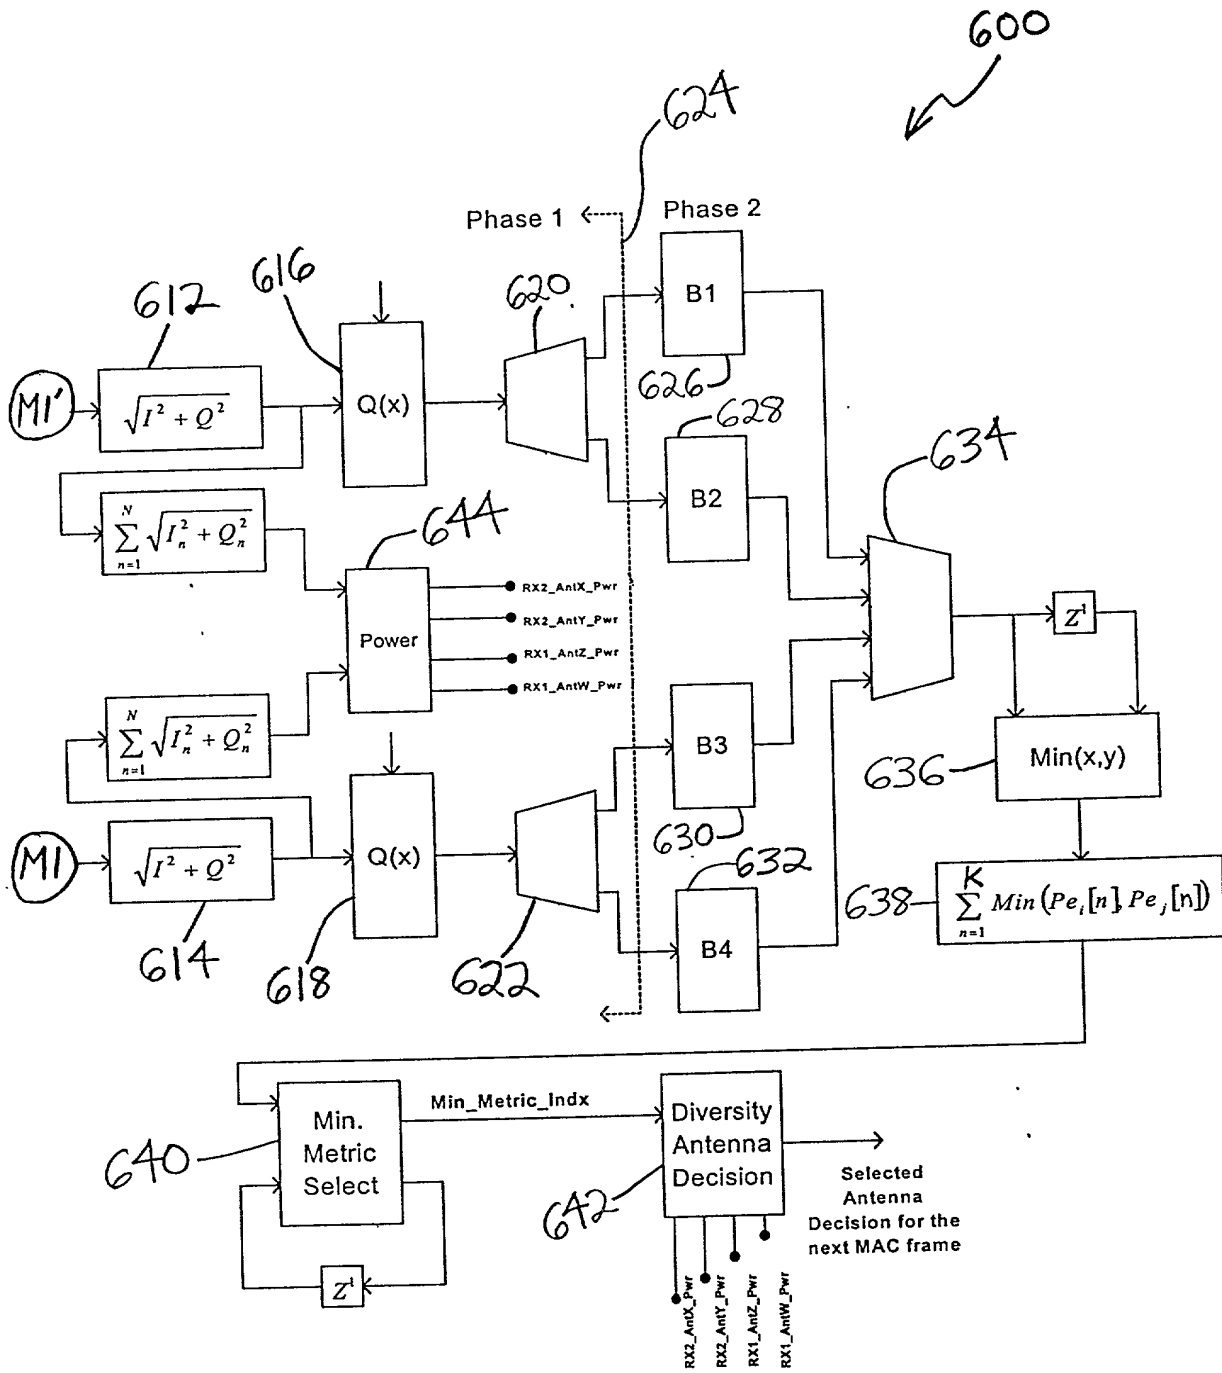 600
624
Phase 1
Phase 2
612
616
620
B1
626
M1'
√I² + Q²
Q(x)
628
B2
634
N
∑ √Iₙ² + Qₙ²
n=1
644
Power
RX2_AntX_Pwr
RX2_AntY_Pwr
RX1_AntZ_Pwr
RX1_AntW_Pwr
Z¹
N
∑ √Iₙ² + Qₙ²
n=1
B3
630
636
Min(x,y)
M1
√I² + Q²
Q(x)
632
B4
638
K
∑ Min (Peᵢ[n], Peⱼ[n])
n=1
614
618
622
640
Min.
Metric
Select
Min_Metric_Indx
Z¹
642
Diversity
Antenna
Decision
Selected
Antenna
Decision for the
next MAC frame
RX2_AntX_Pwr
RX2_AntY_Pwr
RX1_AntZ_Pwr
RX1_AntW_Pwr